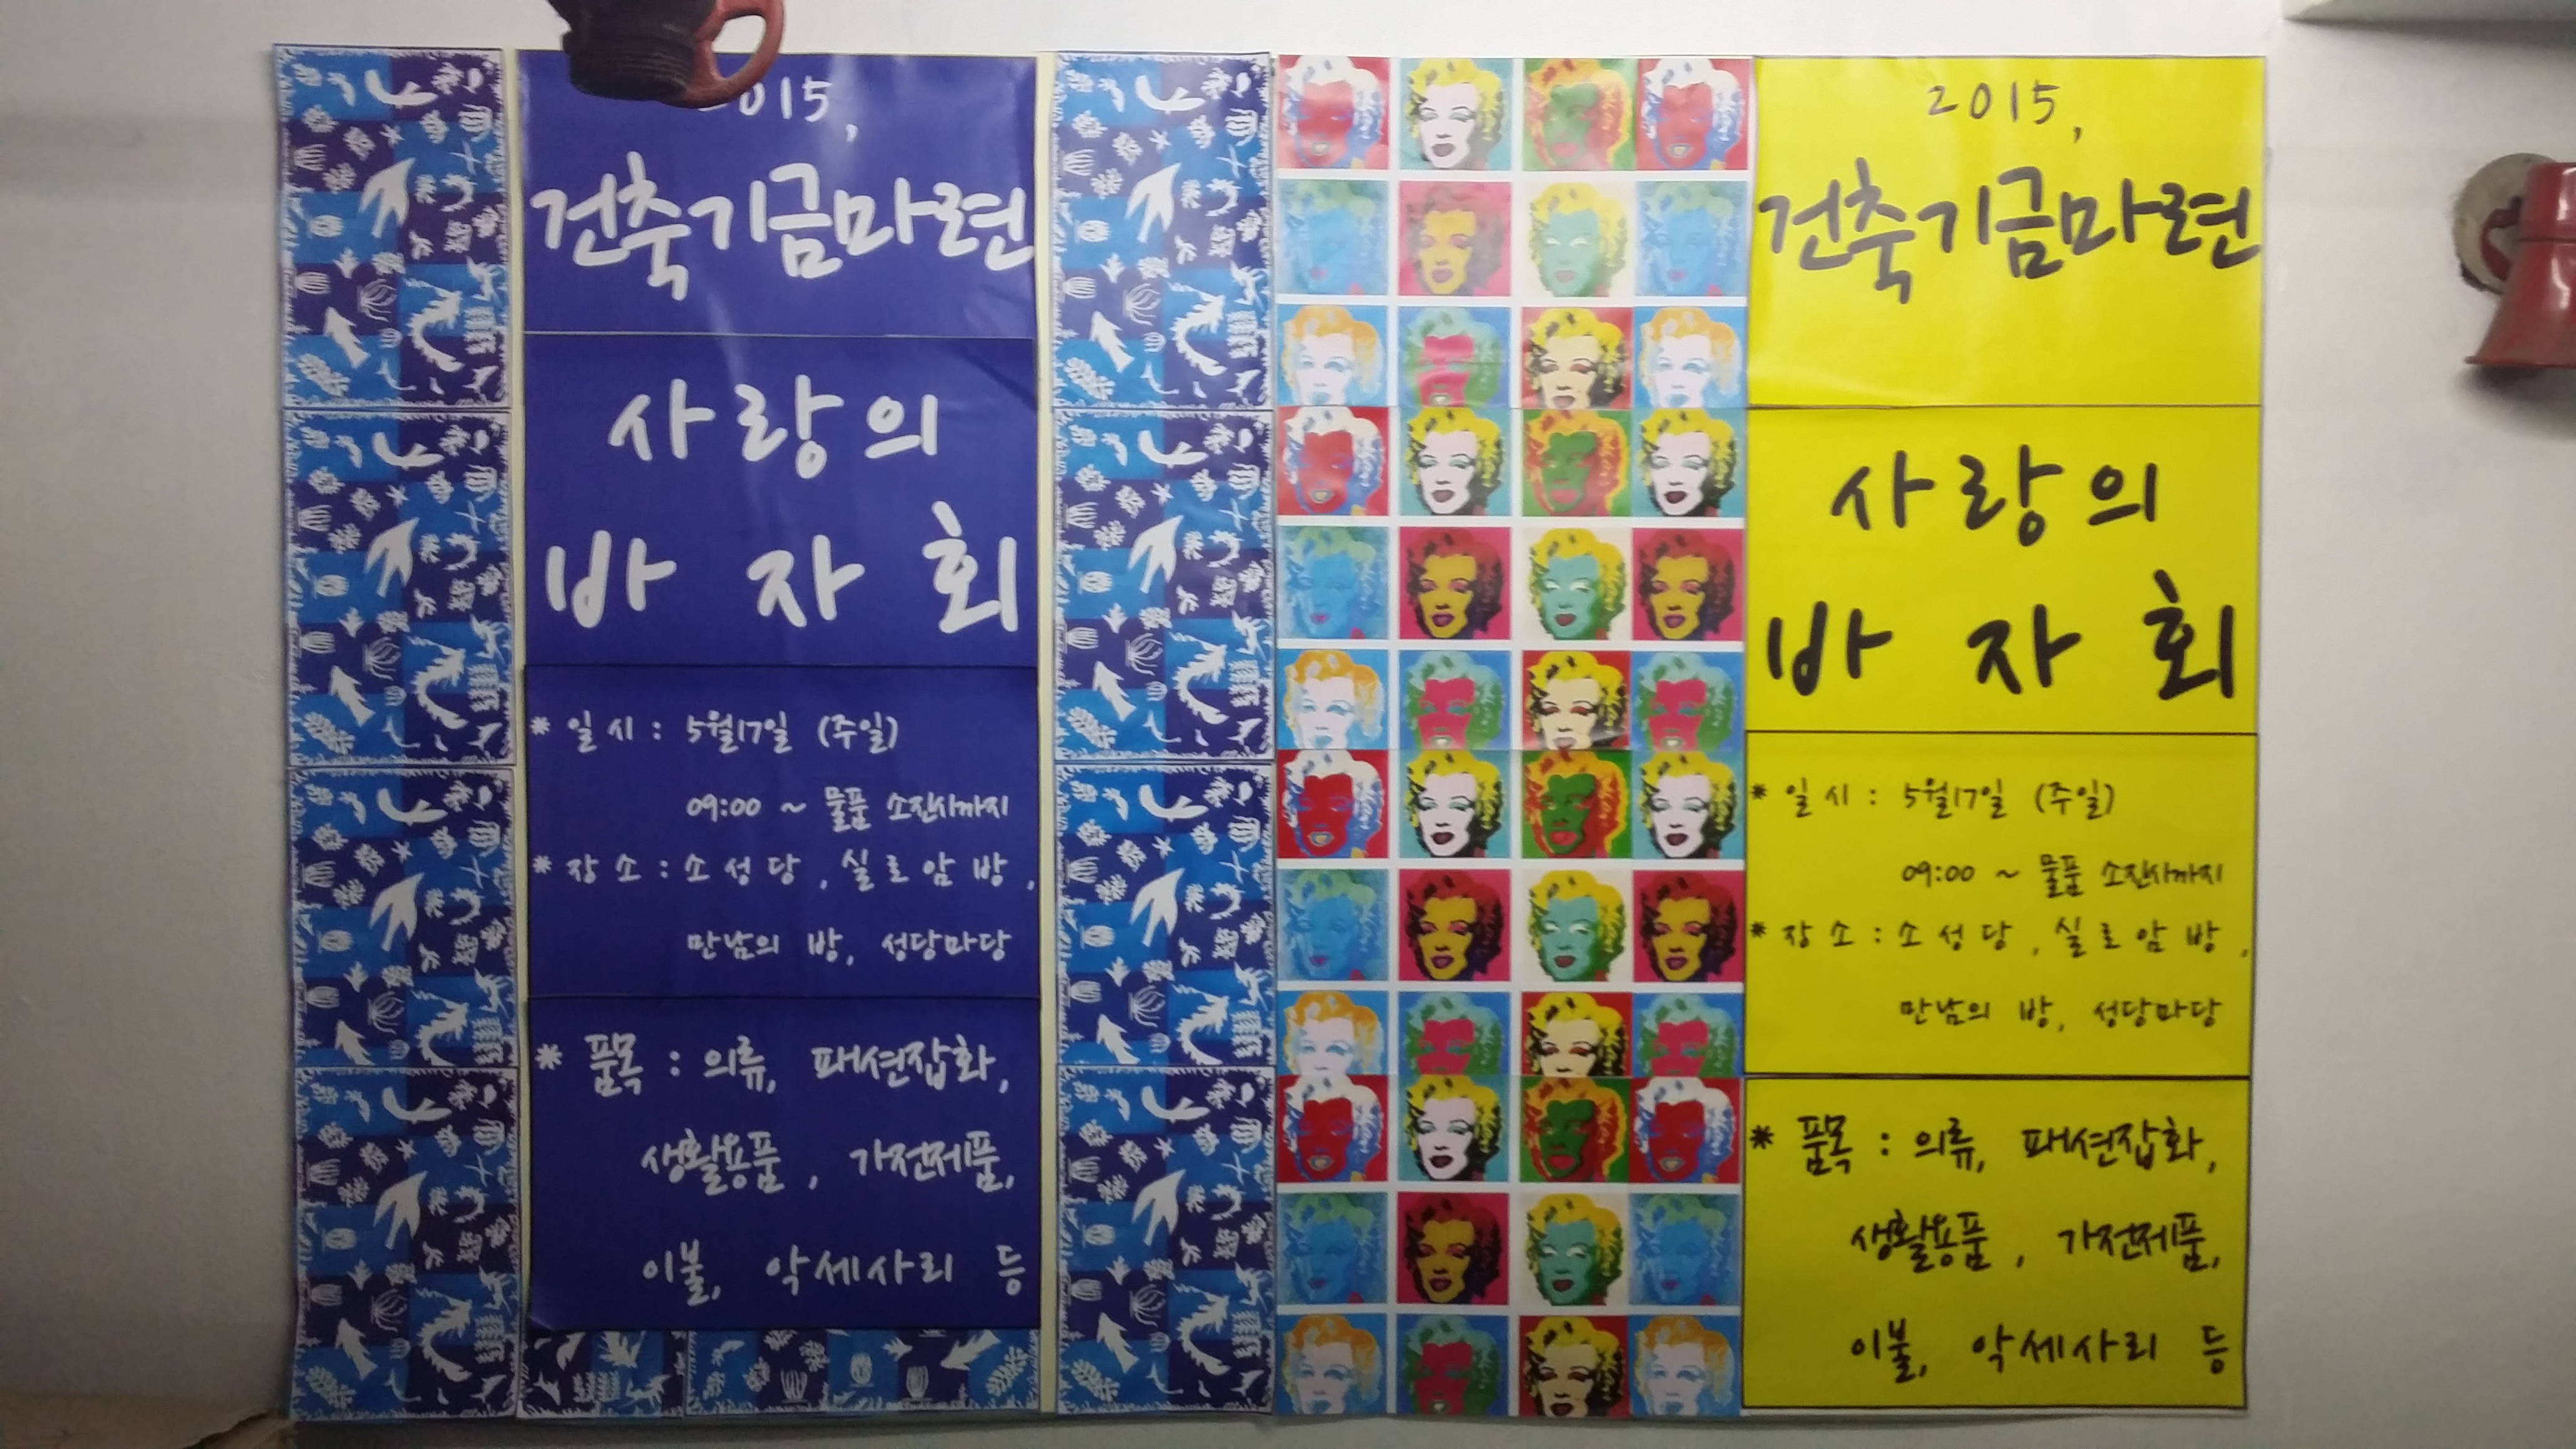 2015,
건축기금마련
사랑의
바 자 회
* 일 시 : 5월17일 (주일)
09:00 ~ 물품 소진시까지
* 장 소 : 소 성 당 , 실 로 암 방 ,
만남의 방, 성당마당
* 품목 : 의류, 패션잡화,
생활용품 , 가전제품,
이불, 악세사리 등
2015,
건축기금마련
사랑의
바 자 회
* 일 시 : 5월17일 (주일)
09:00 ~ 물품 소진시까지
* 장 소 : 소 성 당 , 실 로 암 방 ,
만남의 방, 성당마당
* 품목 : 의류, 패션잡화,
생활용품 , 가전제품,
이불, 악세사리 등